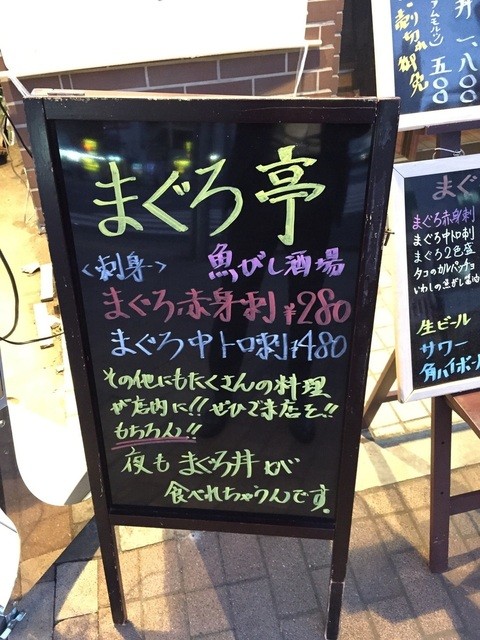 まぐろ亭
<刺身>
魚がし酒場
まぐろ赤身刺 ¥280
まぐろ中トロ刺 ¥480
その他にもたくさんの料理
が店内に!!ぜひご来店を!!
もちろん!!
夜もまぐろ丼が
食べれちゃうんです。
丼 一、八〇〇
五〇〇
売り切れ御免
まぐ
まぐろ赤身刺
まぐろ中トロ刺
まぐろ2色盛
タコのカルパッチョ
いわしの魚がし醤油
生ビール
サワー
角ハイボール